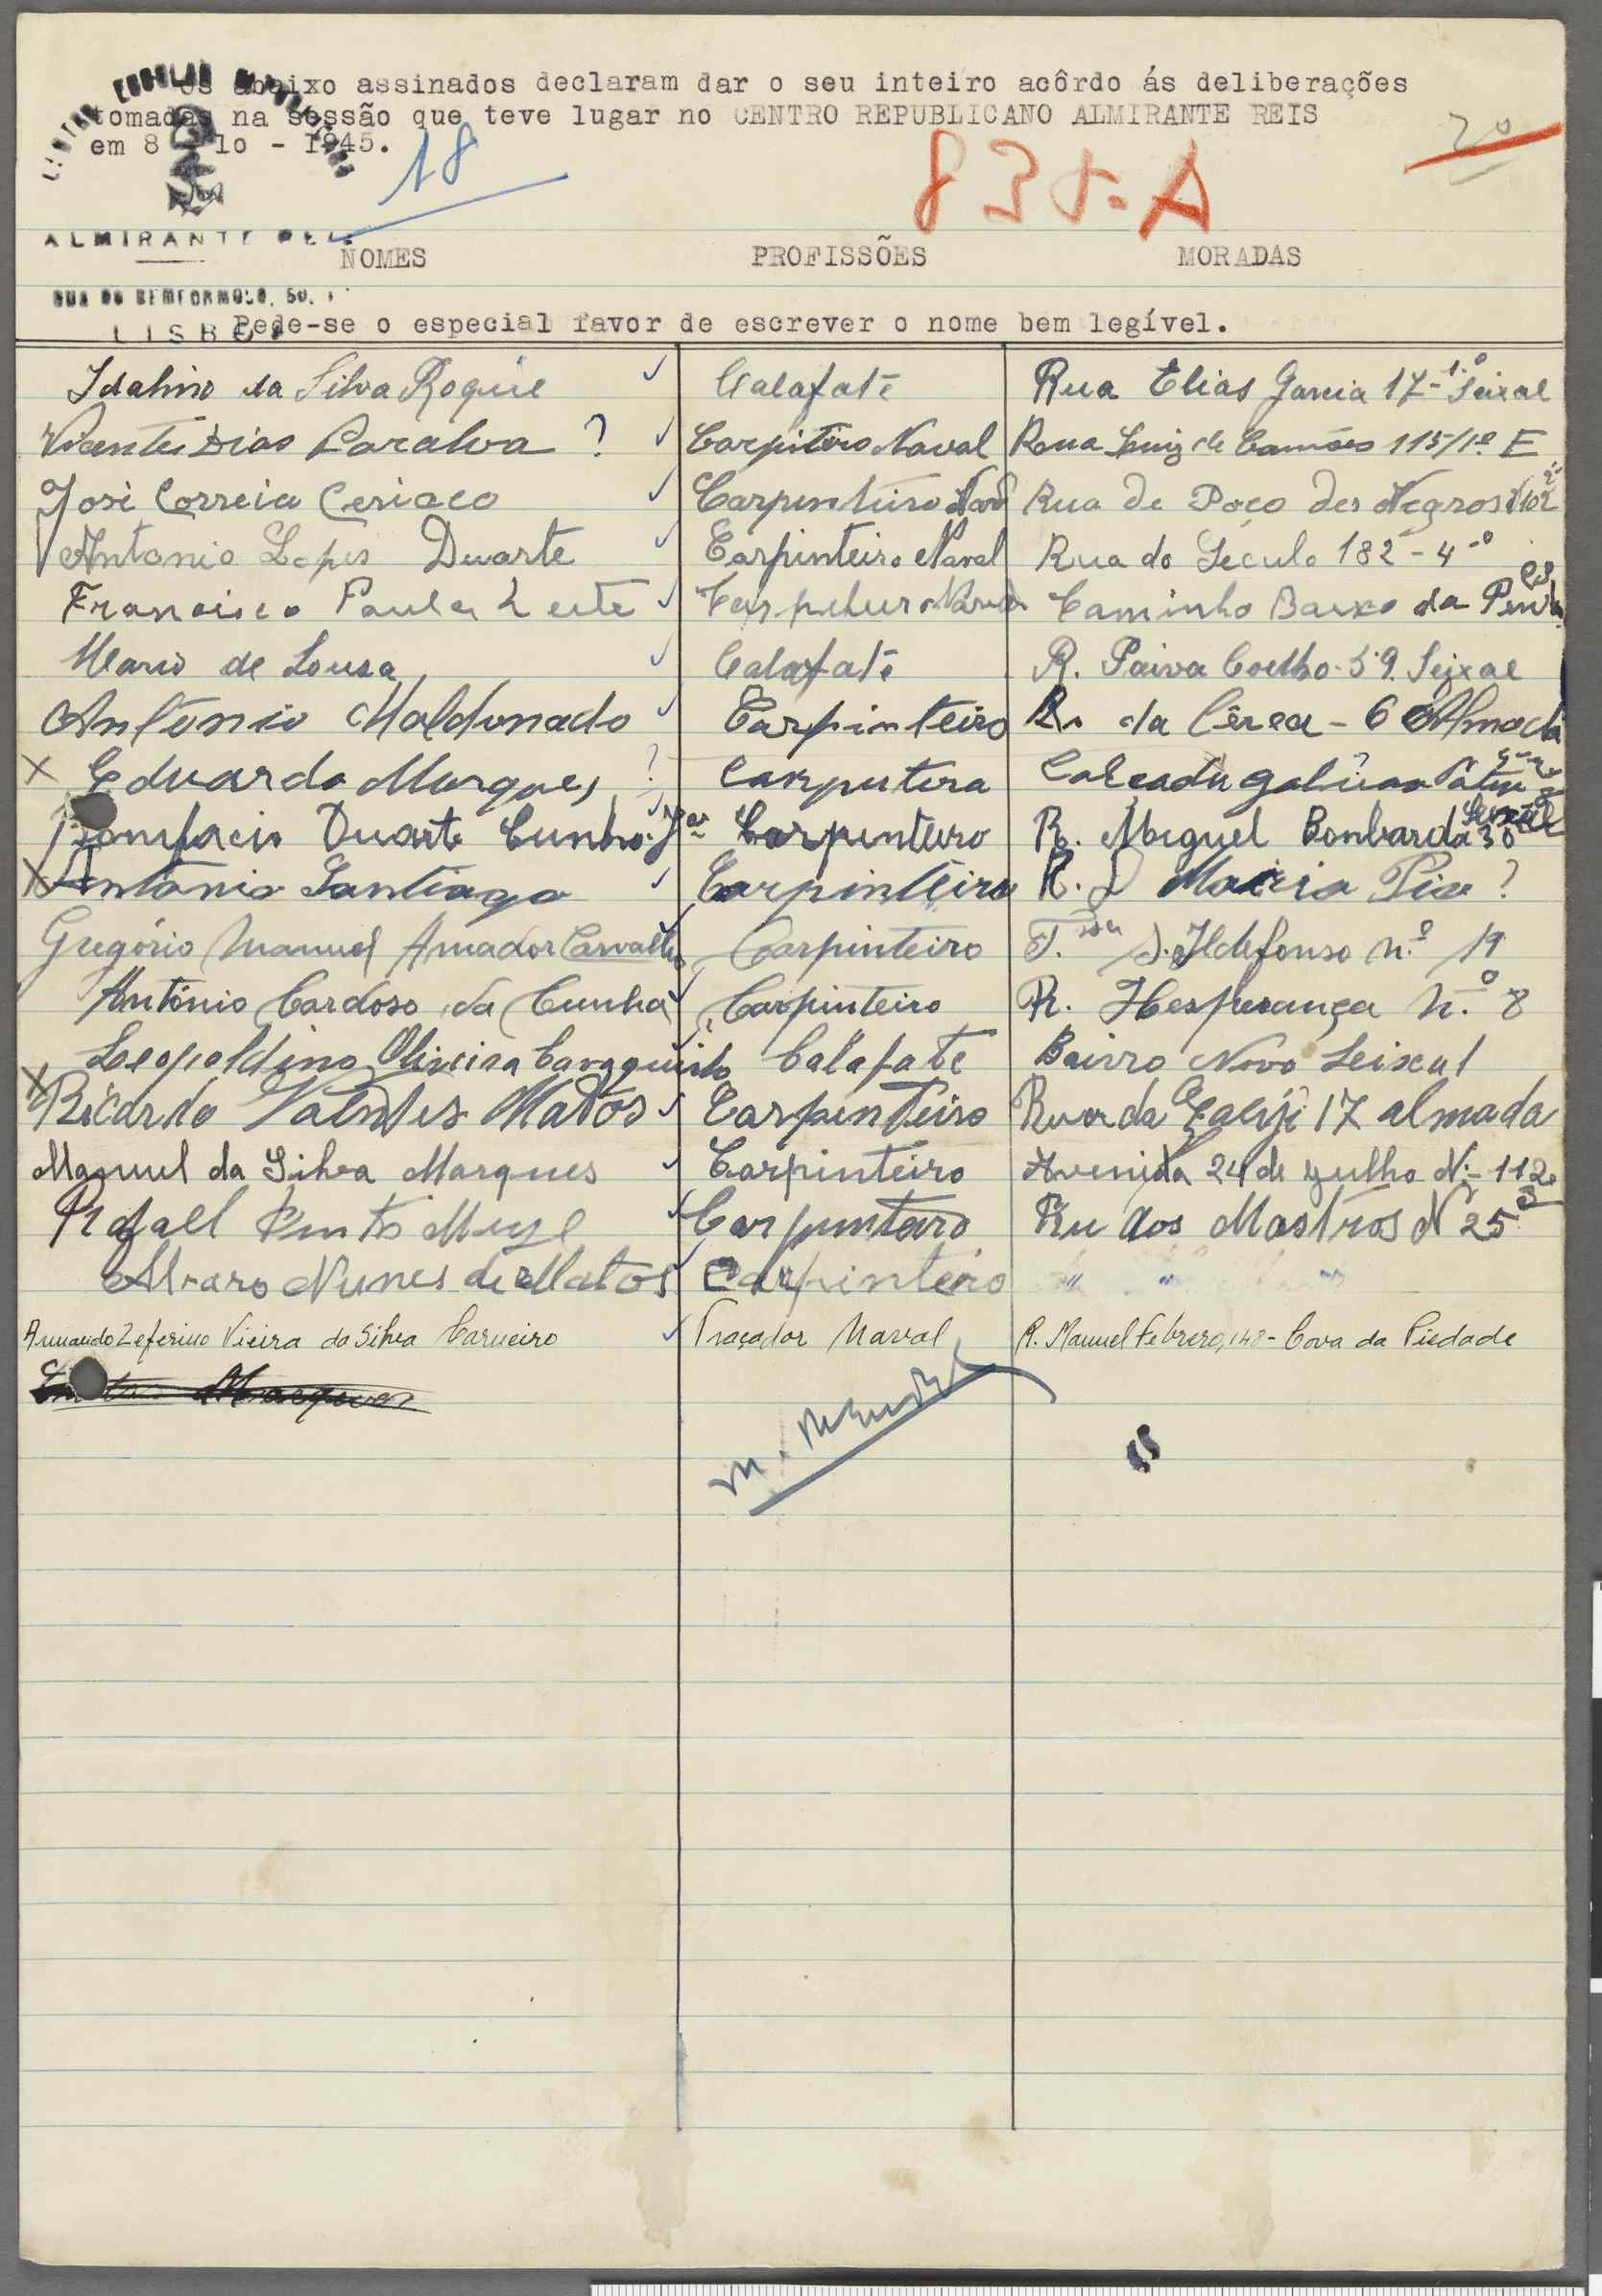 Os abaixo assinados declaram dar o seu inteiro acôrdo ás deliberações
tomadas na sessão que teve lugar no CENTRO REPUBLICANO ALMIRANTE REIS
em 8 - 10 - 1945.
18
835-A
20
ALMIRANTE REIS
NOMES PROFISSÕES MORADAS
RUA DO BEMFORMOSO, 50,
LISBOA
Pede-se o especial favor de escrever o nome bem legível.
Idalino da Silva Roque Calafate Rua Elias Garcia 17-1.º Seixal
Vicente Dias Paralva ? Carpiteiro Naval Rua Luiz de Camões 115/1º E
José Correia Ceriaco Carpinteiro Naval Rua de Poço des Negros
Antonio Lopes Duarte Carpinteiro Naval Rua do Seculo 182-4-º
Francisco Paula Leite Caminho Baixo da Penha
Mario de Sousa Calafate R. Paiva Coelho-59. Seixal
António Maldonado Carpinteiro R. da Cêrca-6 Almada
X Eduardo Marques ? Carputera Calçada
Bonifacio Duarte Cunha Jor Carpinteiro R. Miguel Bombarda 30 Seixal
X Antonio Santiago Carpinteiro R. D Maria Pia ?
Gregório Manuel Amador Carvalho Carpinteiro T. S. Ildefonso n.º 19
António Cardoso da Cunha Carpinteiro R. Hesperança n.º 8
Leopoldino Oliveira Calafate Bairro Novo Seixal
X Ricardo Valentes Matos Carpinteiro Rua da 17 almada
Manuel da Silva Marques Carpinteiro Avenida 24 de gulho N.- 112
Rafael Pinto Carpintaro Ru dos Mastros N 25
Alvaro Nunes de Matos Carpinteiro " " "
Armando Zeferino Vieira da Silva Carneiro Traçador Naval R. Manuel Febrero, 148 - Cova da Piedade
Marques